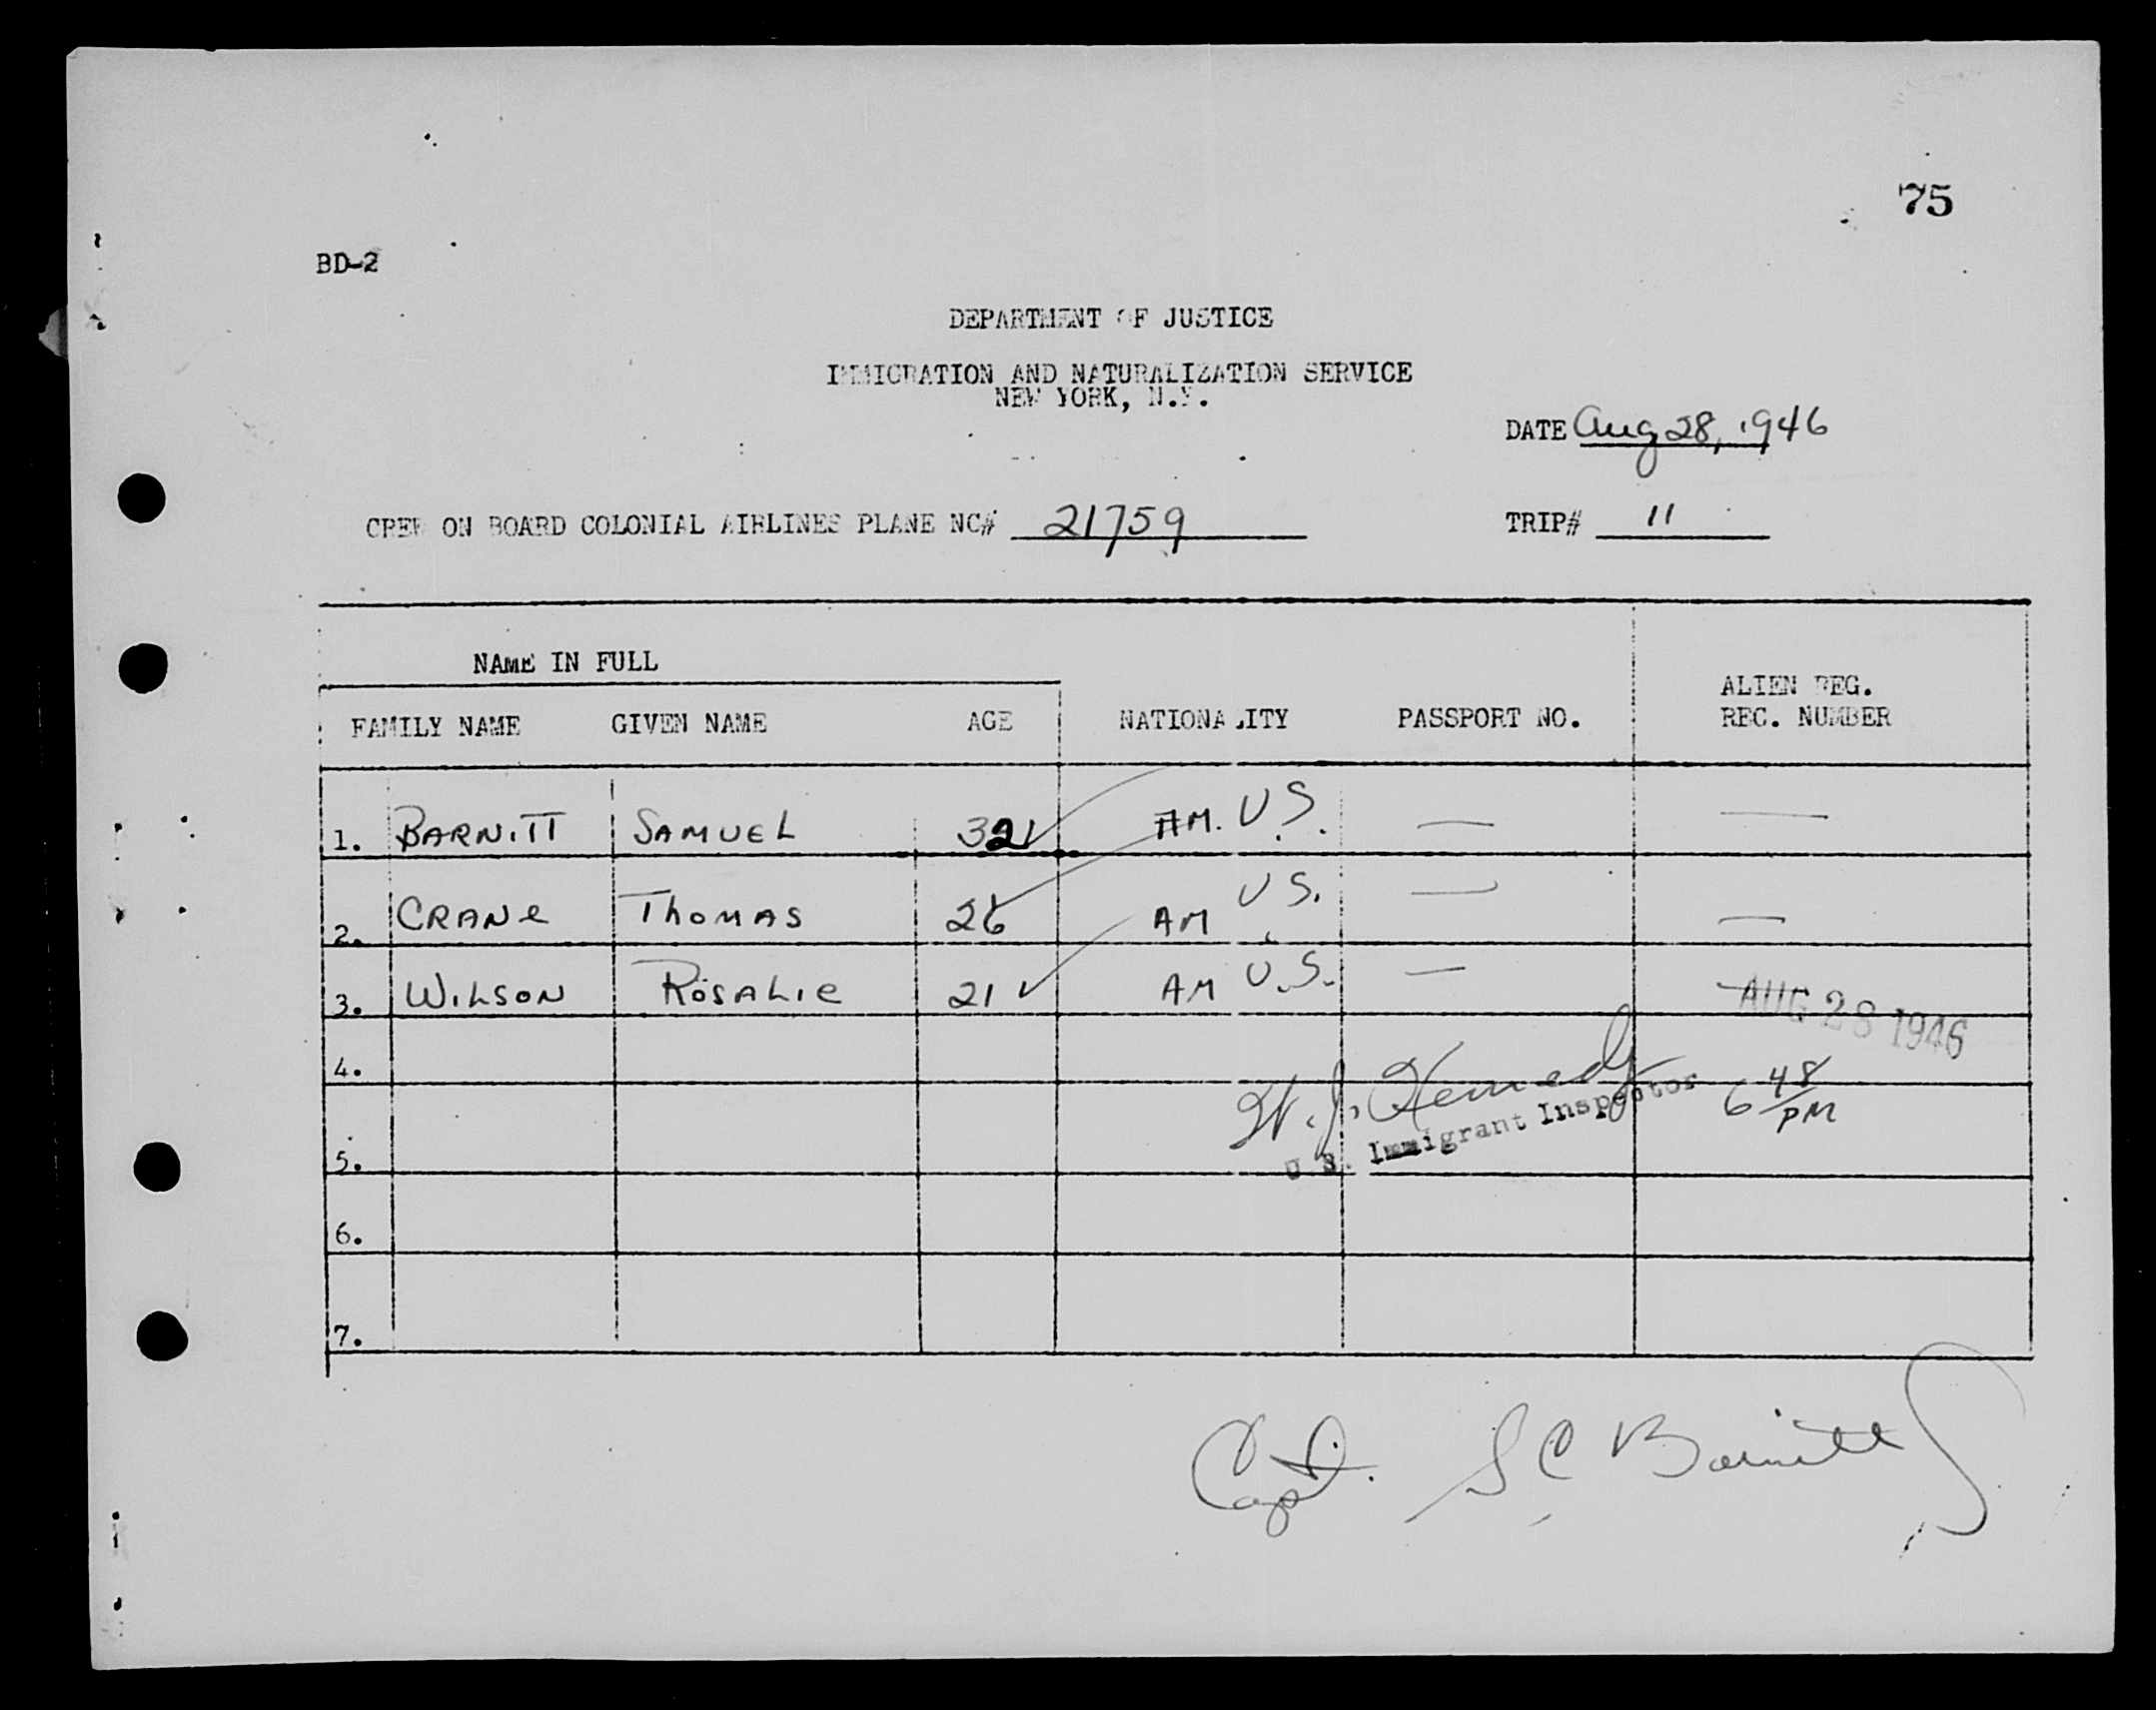 75
BD-2
DEPARTMENT OF JUSTICE
IMMIGRATION AND NATURALIZATION SERVICE
NEW YORK, N.Y.
DATE Aug 28, 1946
CREW ON BOARD COLONIAL AIRLINES PLANE NC# 21759 TRIP# 11
NAME IN FULL
FAMILY NAME GIVEN NAME AGE NATIONALITY PASSPORT NO. ALIEN REG. REC. NUMBER
1. BARNITT SAMUEL 32 AM. U.S. — —
2. CRANE THOMAS 26 AM U.S. — —
3. WILSON ROSALIE 21 AM U.S. — —
AUG 28 1946
4.
W. J. Kennedy 6 48 PM
U.S. Immigrant Inspector
5.
6.
7.
Capt. S C Barnitt